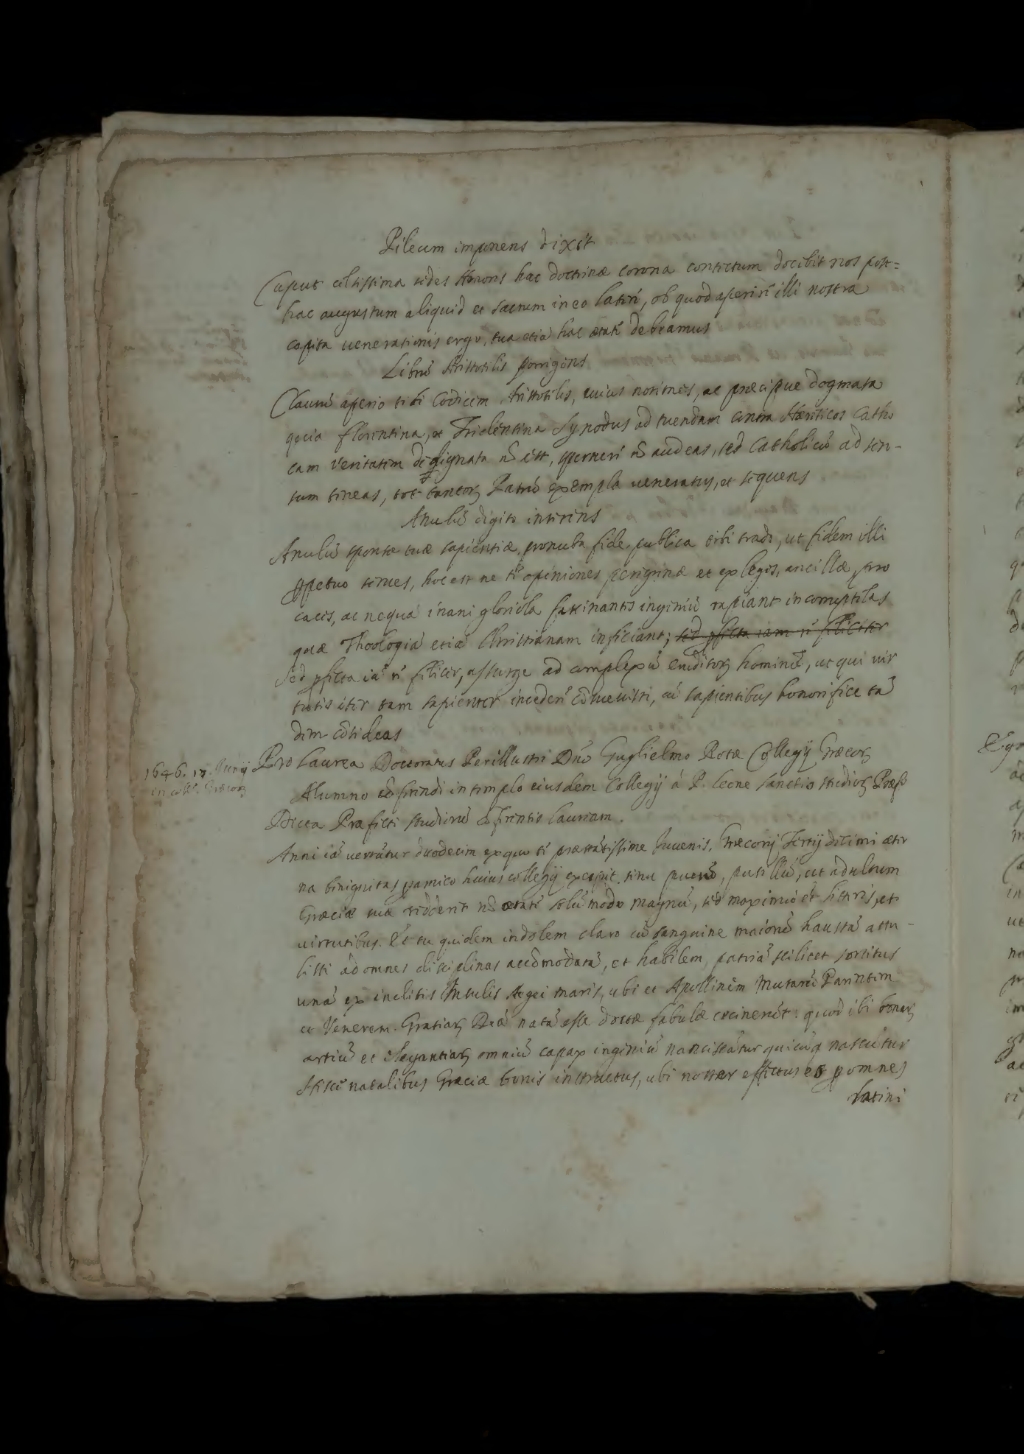 Pileum imponens dixit
Caput celsissima sedes Honoris hac doctrinæ corona contectum docebit nos post=
hac augustum aliquid et sacrum in eo latere, ob quod aperire illi nostra
capita uenerationis ergo, tua etiã hac ætate debeamus
Librũ Aristotelis porrigens
Clausũ aperio tibi Codicem Aristotelis, cuius notiones, ac præcipue dogmata
quia Florentina, et Tridentina Synodus ad tuendam contra Hæreticos Catho
cam veritatem dedignata nõ est, spernere nõ audeas, sed Catholicũ ad sen-
sum teneas, tot tantorũ Patrũ exempla ueneratus, et sequens
Anulũ digito inserens
Anulũ sponsæ tuæ sapientiæ pronuba fide publica tibi trado, ut fidem illi
ppetuo serues, hoc est ne te opiniones peregrinæ et exleges, ancillæ pro
caces, ac nequã inani gloriola fascinantes ingeniũ rapiant incorruptelas
quæ Theologiã etiã Christianam inficiant; sed pfecta iam re feliciter
sed pfecta iã re felicir, assurge ad complexũ Eruditorũ hominũ, ut qui uir
tutis iter tam sapienter incedere cõsueuisti, cũ sapientibus honorifice tã
dem cõsideas
1646. 17. Junij Pro Laurea Doctoratus Perillustri Dnõ Guglielmo Rotæ Collegij Græcorũ
in coll.º Græcorũ Alumno cõferendi in templo eiusdem Collegij à P. Leone Sanctio studiorũ Præfto
Dicta Præfecti studiorũ cõferentis lauream.
Anni iã uertutur duodecim ex quo te præstatissime Juuenis, Gregorij Tertij decimi æter
na benignitas pamico huius collegij excepit sinu puerũ, pusillũ, ut adultum
Græciæ suæ redderet nõ ætate solũmodo magnũ, sed maximũ et litteris, et
uirtutibus. Et tu quidem indolem claro cũ sanguine maiorũ haustã attu-
listi ad omnes disciplinas accõmodatã, et habilem, patriã scilicet sortitus
unã ex inclitis Insulis Ægei maris, ubi et Apollinem Musarũ Parentem
et Venerem Gratiarũ Deã natã esse doctæ fabulæ cecinerũt: quod ibi bonarũ
artiũ et elegantiarũ omniũ capax ingeniũ nanciscatur quicũq nascutur
Hisce natalibus Græciæ bonis instructus, ubi noster effectus es p omnes
latini